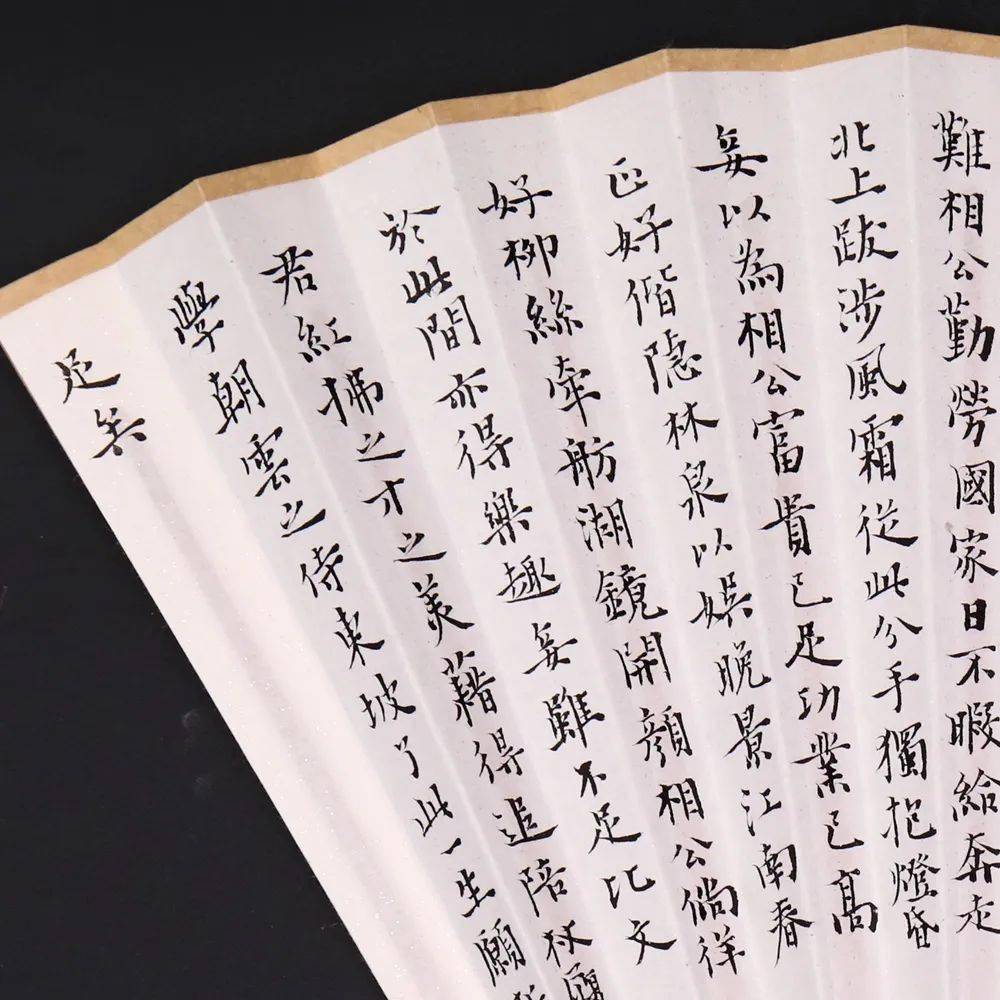 難相公勤勞國家日不暇給奔走
北上跋涉風霜從此分手獨抱燈昏
妾以為相公富貴已足功業已高
正好偕隱林泉以娛晚景江南春
好柳絲牽舫湖鏡開顏相公徜徉
於此間亦得樂趣妾雖不足比文
君紅拂之才之美藉得追陪杖
學朝雲之侍東坡了此一生願
足矣